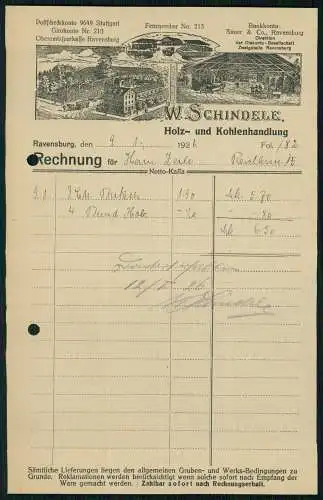 Postscheckkonto 9649 Stuttgart
Girokonto Nr. 210
Oberamtssparkasse Ravensburg
Fernsprecher Nr. 213
Bankkonto:
& Co., Ravensburg
Direktion
der Disconto-Gesellschaft
Zweigstelle Ravensburg
W. SCHINDELE,
Holz- und Kohlenhandlung
Ravensburg, den 9. 1. 1926 Fol. 182
Rechnung für Herrn
Netto-Kassa
3 Ztr. 1.90 Mk 5.70
4 Bund Holz -.20 -.80
Mk 6.50
Sämtliche Lieferungen liegen den allgemeinen Gruben- und Werks-Bedingungen zu
Grunde. Reklamationen werden berücksichtigt wenn solche sofort nach Empfang der
Ware gemacht werden. Zahlbar sofort nach Rechnungserhalt.